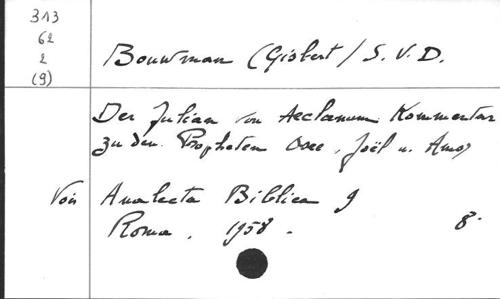 313
62
2
(9)
Bouwman (Gisbert) S.V.D.
Des Julian von Aeclanum Kommentar
zu den Propheten Osee, Joël u. Amos
Voir Analecta Biblica 9
Roma, 1958. 8°